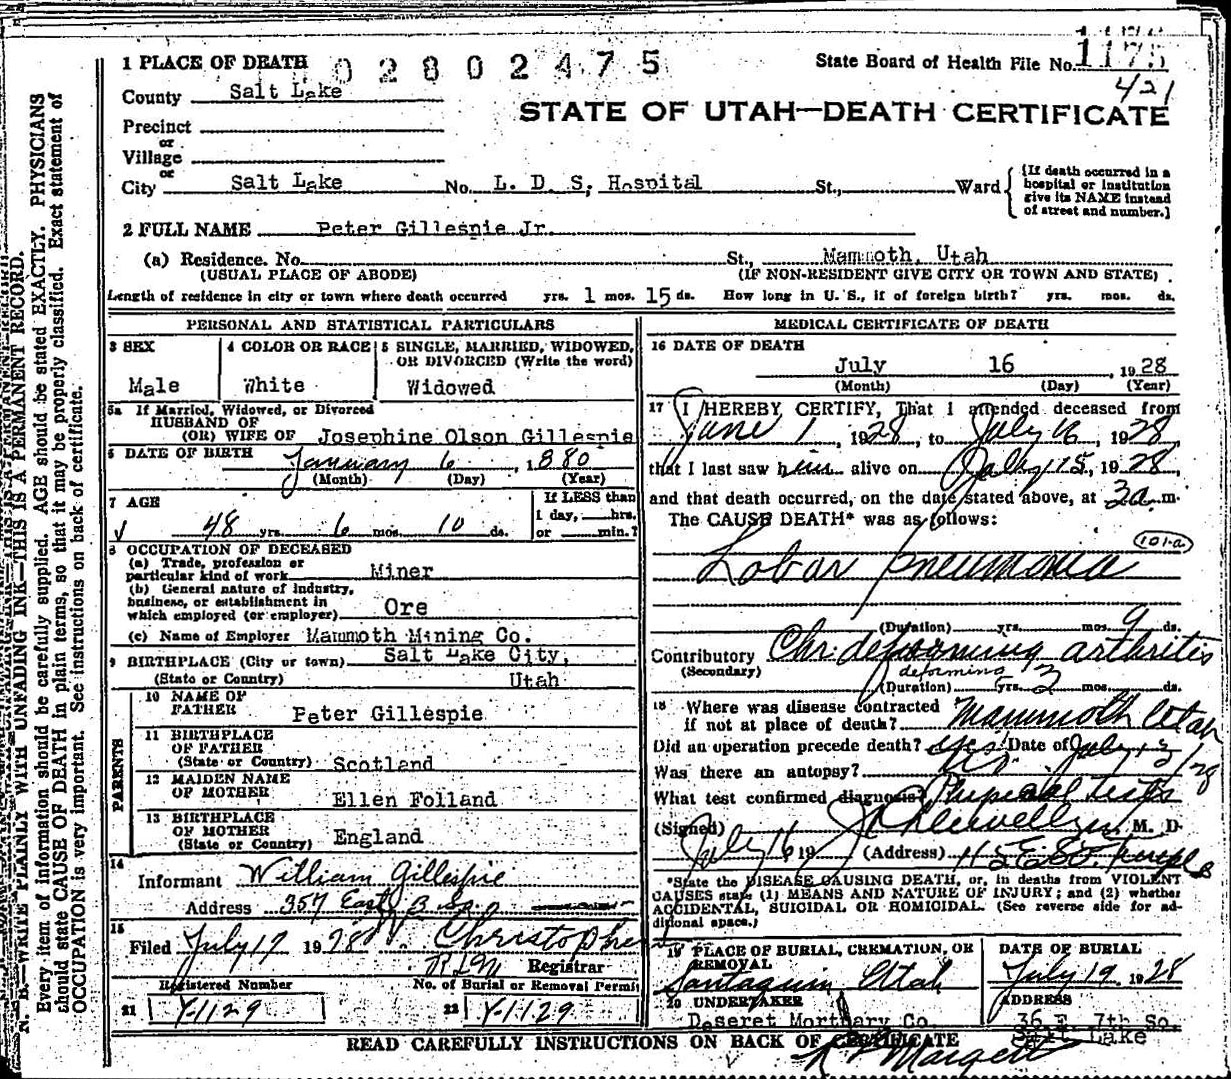 1 PLACE OF DEATH
02802475
State Board of Health File No. 1175
421
County Salt Lake
STATE OF UTAH—DEATH CERTIFICATE
Precinct
or
Village
or
City Salt Lake No. L. D. S. Hospital St., Ward
[If death occurred in a hospital or institution give its NAME instead of street and number.]
2 FULL NAME Peter Gillespie Jr.
(a) Residence. No. St., Mammoth, Utah
(USUAL PLACE OF ABODE) (IF NON-RESIDENT GIVE CITY OR TOWN AND STATE)
Length of residence in city or town where death occurred yrs. 1 mos. 15 ds. How long in U. S., if of foreign birth? yrs. mos. ds.
PERSONAL AND STATISTICAL PARTICULARS
3 SEX
Male
4 COLOR OR RACE
White
5 SINGLE, MARRIED, WIDOWED, OR DIVORCED (Write the word)
Widowed
5a If Married, Widowed, or Divorced
HUSBAND OF
(OR) WIFE OF Josephine Olson Gillespie
6 DATE OF BIRTH January 6, 1880
(Month) (Day) (Year)
7 AGE
48 yrs. 6 mos. 10 ds.
If LESS than
1 day, hrs.
or min.?
8 OCCUPATION OF DECEASED
(a) Trade, profession or
particular kind of work Miner
(b) General nature of industry,
business, or establishment in
which employed (or employer) Ore
(c) Name of Employer Mammoth Mining Co.
9 BIRTHPLACE (City or town) Salt Lake City,
(State or Country) Utah
PARENTS
10 NAME OF
FATHER Peter Gillespie
11 BIRTHPLACE
OF FATHER
(State or Country) Scotland
12 MAIDEN NAME
OF MOTHER Ellen Folland
13 BIRTHPLACE
OF MOTHER
(State or Country) England
14
Informant William Gillespie
Address 357 East
15
Filed July 17 1928 Christopherson
Registrar
Registered Number No. of Burial or Removal Permit
21 Y-1129 22 Y-1129
MEDICAL CERTIFICATE OF DEATH
16 DATE OF DEATH
July 16, 1928
(Month) (Day) (Year)
17 I HEREBY CERTIFY, That I attended deceased from
June 1, 1928, to July 16, 1928
that I last saw him alive on July 15, 1928,
and that death occurred, on the date stated above, at 3 a.m.
The CAUSE DEATH* was as follows:
101-a
Lobar pneumonia
(Duration) yrs. mos. 9 ds.
Contributory Chr. deforming arthritis
(Secondary) deforming
(Duration) yrs. 2 mos. ds.
18 Where was disease contracted
if not at place of death? Mammoth Utah
Did an operation precede death? yes Date of July 13/28
Was there an autopsy?
What test confirmed diagnosis? Physical tests
(Signed) Llewellyn, M. D.
July 16 19 (Address)
*State the DISEASE CAUSING DEATH, or, in deaths from VIOLENT
CAUSES state (1) MEANS AND NATURE OF INJURY; and (2) whether
ACCIDENTAL, SUICIDAL OR HOMICIDAL. (See reverse side for ad-
ditional space.)
19 PLACE OF BURIAL, CREMATION, OR
REMOVAL
Santaquin, Utah
DATE OF BURIAL
July 19 1928
20 UNDERTAKER
Deseret Mortuary Co.
ADDRESS
36 E. 7th So.
Salt Lake
READ CAREFULLY INSTRUCTIONS ON BACK OF CERTIFICATE
N. B.—WRITE PLAINLY WITH UNFADING INK—THIS IS A PERMANENT RECORD.
Every item of information should be carefully supplied. AGE should be stated EXACTLY. PHYSICIANS
should state CAUSE OF DEATH in plain terms, so that it may be properly classified. Exact statement of
OCCUPATION is very important. See instructions on back of certificate.